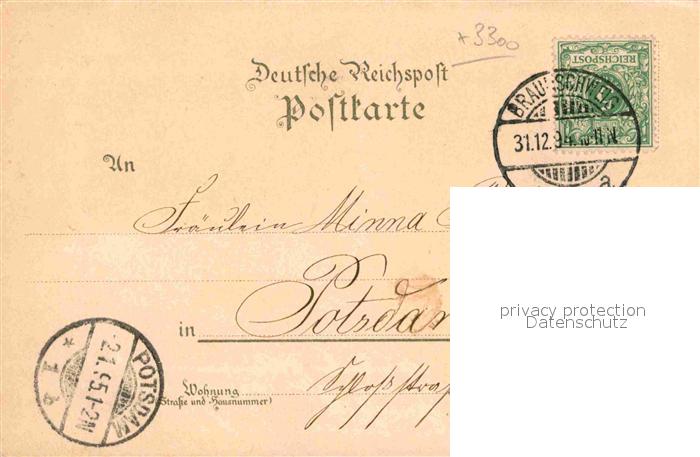 *3300
REICHSPOST
Deutsche Reichspost
Postkarte
BRAUNSCHWEIG
31.12.94. 10-11 N.
a.
An
Fräulein Minna
privacy protection
Datenschutz
in Potsdam
POTSDAM
2.1.95.1-2N
* 1
Wohnung
(Straße und Hausnummer)
Schloßstra